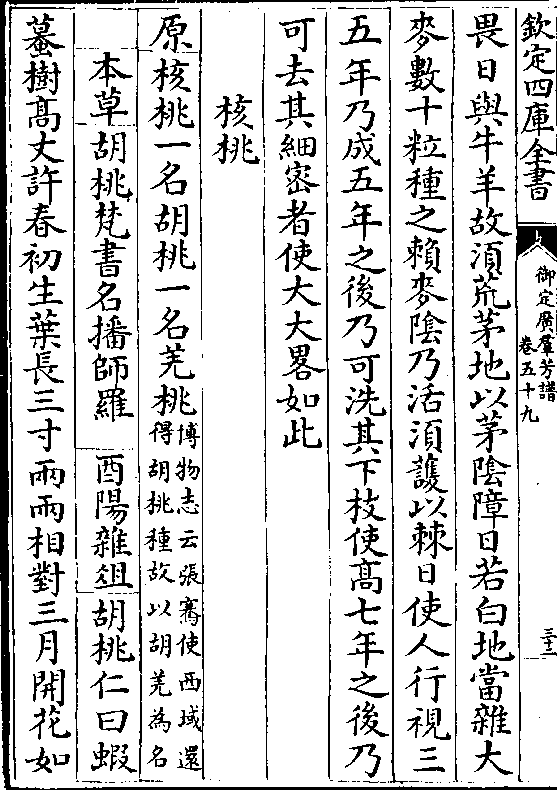 欽定四庫全書
御定廣羣芳譜
卷五十九
三十二
畏日與牛羊故須荒茅地以茅陰障日若白地當雜大
麥數十粒種之賴麥陰乃活須護以棘日使人行視三
五年乃成五年之後乃可洗其下枝使髙七年之後乃
可去其細宻者使大大畧如此
核桃
原核桃一名胡桃一名羌桃博物志云張騫使西域還
得胡桃種故以胡羌為名
本草胡桃梵書名播師羅 酉陽雜俎胡桃仁曰蝦
蟇樹髙丈許春初生葉長三寸兩兩相對三月開花如